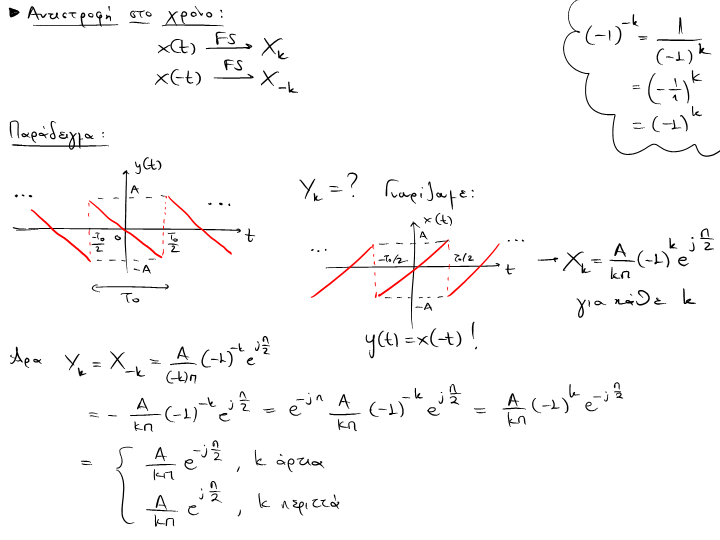 ▶ Αντιστροφή στο χρόνο:
x(t) FS→ X_k
x(-t) FS→ X_{-k}
(-1)^{-k} = 1/(-1)^k
= (-1/1)^k
= (-1)^k
Παράδειγμα:
y(t)
A
... ...
T₀/2 0 T₀/2 t
-A
T₀
Y_k = ? Γνωρίζαμε:
x(t)
A
... ...
-T₀/2 T₀/2 t
-A
y(t) = x(-t) !
→ X_k = A/(kπ) (-1)^k e^{jπ/2}
για κάθε k
Άρα Y_k = X_{-k} = A/((-k)π) (-1)^{-k} e^{jπ/2}
= - A/(kπ) (-1)^{-k} e^{jπ/2} = e^{-jπ} A/(kπ) (-1)^{-k} e^{jπ/2} = A/(kπ) (-1)^k e^{-jπ/2}
= { A/(kπ) e^{-jπ/2}, k άρτια
A/(kπ) e^{jπ/2}, k περιττά